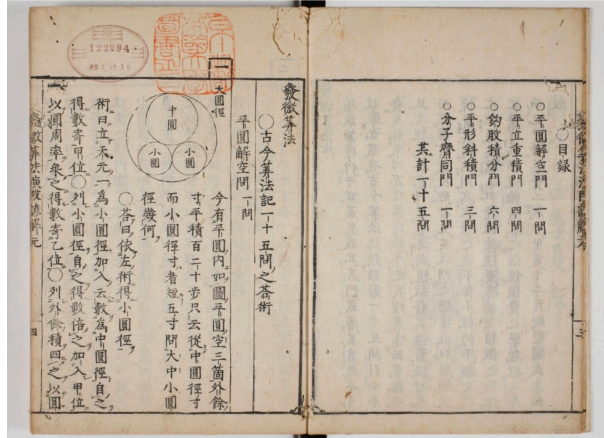 ○目録
○平圓解空門 一問
○平立重積門 四問
○鈎股積分門 六問
○平形斜積門 一問
○分子齊同門 一問
共計一十五問
發微算法
○古今算法記一十五問之荅術
平圓解空問 一問
今有平圓内如圖平圓空三箇外餘
寸平積百二十歩只云從中圓徑寸
而小圓徑寸者短五寸問大中小圓
徑幾何
○荅曰依左術得小圓徑
術曰立天元一為小圓徑加入云數為中圓徑自之
得數寄甲位○列小圓徑自之得數倍之加入甲位
以圓周率乗之得數寄乙位○列外餘積四之以圓
大圓徑
中圓
小圓
小圓
四
122294